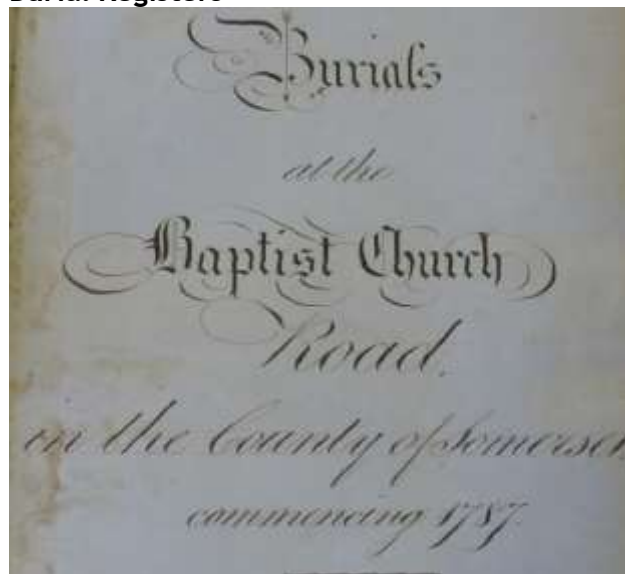 Burials
at the
Baptist Church
Road.
in the County of Somerset
commencing 1787.